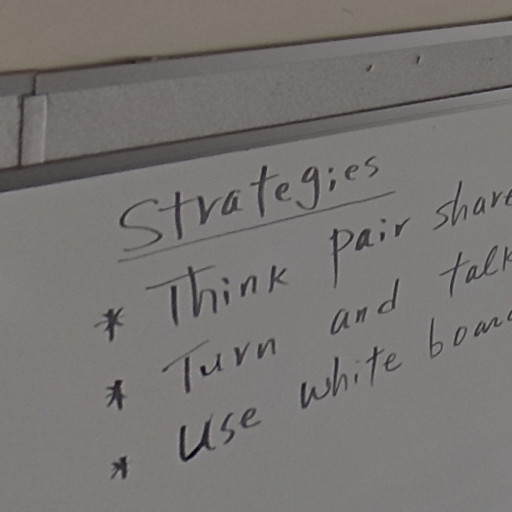 Strategies
* Think pair share
* Turn and talk
* Use white board